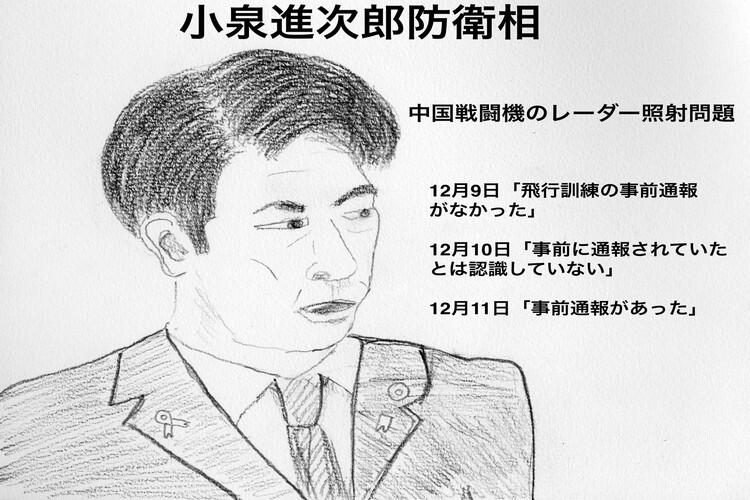 小泉進次郎防衛相
中国戦闘機のレーダー照射問題
12月9日「飛行訓練の事前通報
がなかった」
12月10日「事前に通報されていた
とは認識していない」
12月11日「事前通報があった」